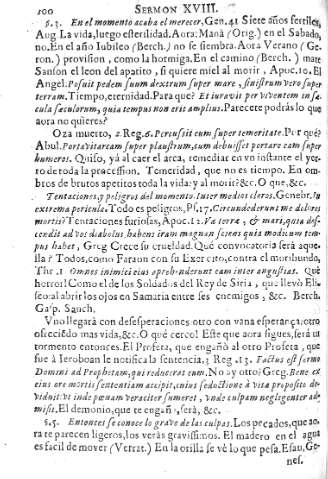 100 SERMON XVIII.
§.3. En el momento acaba el merecer, Gen. 41 Siete años fertiles,
Aug La vida, luego esterilidad. Aora: Manà (Orig.) en el Sabado,
no. En el año Iubileo (Berch.) no se siembra. Aora Verano (Ge-
ron.) provision, como la hormiga. En el camino (Berch.) mate
Sanson el leon del apatito, si quiere miel al morir, Apoc. 10. El
Angel. Posuit pedem suum dextrum super mare, sinistrum vero super
terram. Tiempo, eternidad. Para què? Et iuravit per viventem in sæ-
cula sæculorum, quia tempus non erit amplius. Parecete podràs lo que
aora no quieres?
Oza muerto, 2. Reg. 6. Percussit eum super temeritate. Por què?
Abul. Portavit arcam super plaustrum, cum debuisset portare eam super
humeros. Quiso, yà al caer el arca, remediar en vn instante el yer-
ro de toda la processsion. Temeridad, que no es tiempo. En om-
bros de brutos apetitos toda la vida: y al morir? &c. O que, &c.
Tentaciones, y peligros del momento. tuier medios claros. Genebr. In
extrema pericula. Todo es peligros, Ps. 17. Circundederunt me dolores
mortis? Tentaciones furiosas, Apoc. 12. Væ terræ, & mari, quia des-
cendit ad vos diabolus habens iram magnam sciens quia modicum tem-
pus habet, Greg Crece su crueldad. Què convocatoria serà aque-
lla? Todos, como Faraon con su Exercito, contra el moribundo,
Thr. 1 Omnes inimici eius aprehenderunt eam inter angustias. Què
horror! Como el de los Soldados del Rey de Siria, que llevò Eli-
seo: al abrir los ojos en Samaria entre sus enemigos, &c. Berch.
Gasp. Sanch.
Vno llegarà con desesperaciones otro con vana esperança, etc
ofreciendo mas vida, &c. O què cerco! Este que aora sigues, serà tu
tormento entonces. El Profeta, que engañò al otro Profeta, que
fue à Ieroboan le notifica la sentencia, 3 Reg. 13. Factus est sermo
Domini ad Prophetam, qui reduxerat eum. No ay otro? Greg. Bene ex
eius ore mortis sententiam accipit, cuius seductione à vita proposito de-
viavit vt inde pœnam veraciter sumeret, vnde culpam negligenter ad-
misit. El demonio, que te engañò, serà, &c.
§.5. Entonces se conoce lo grave de las culpas. Los pecados, que ao-
ra te parecen ligeros, los veràs gravissimos. El madero en el agua
es facil de mover (Vetrat.) En la orilla se vè lo que pesa. Esau, Ge-
nes.